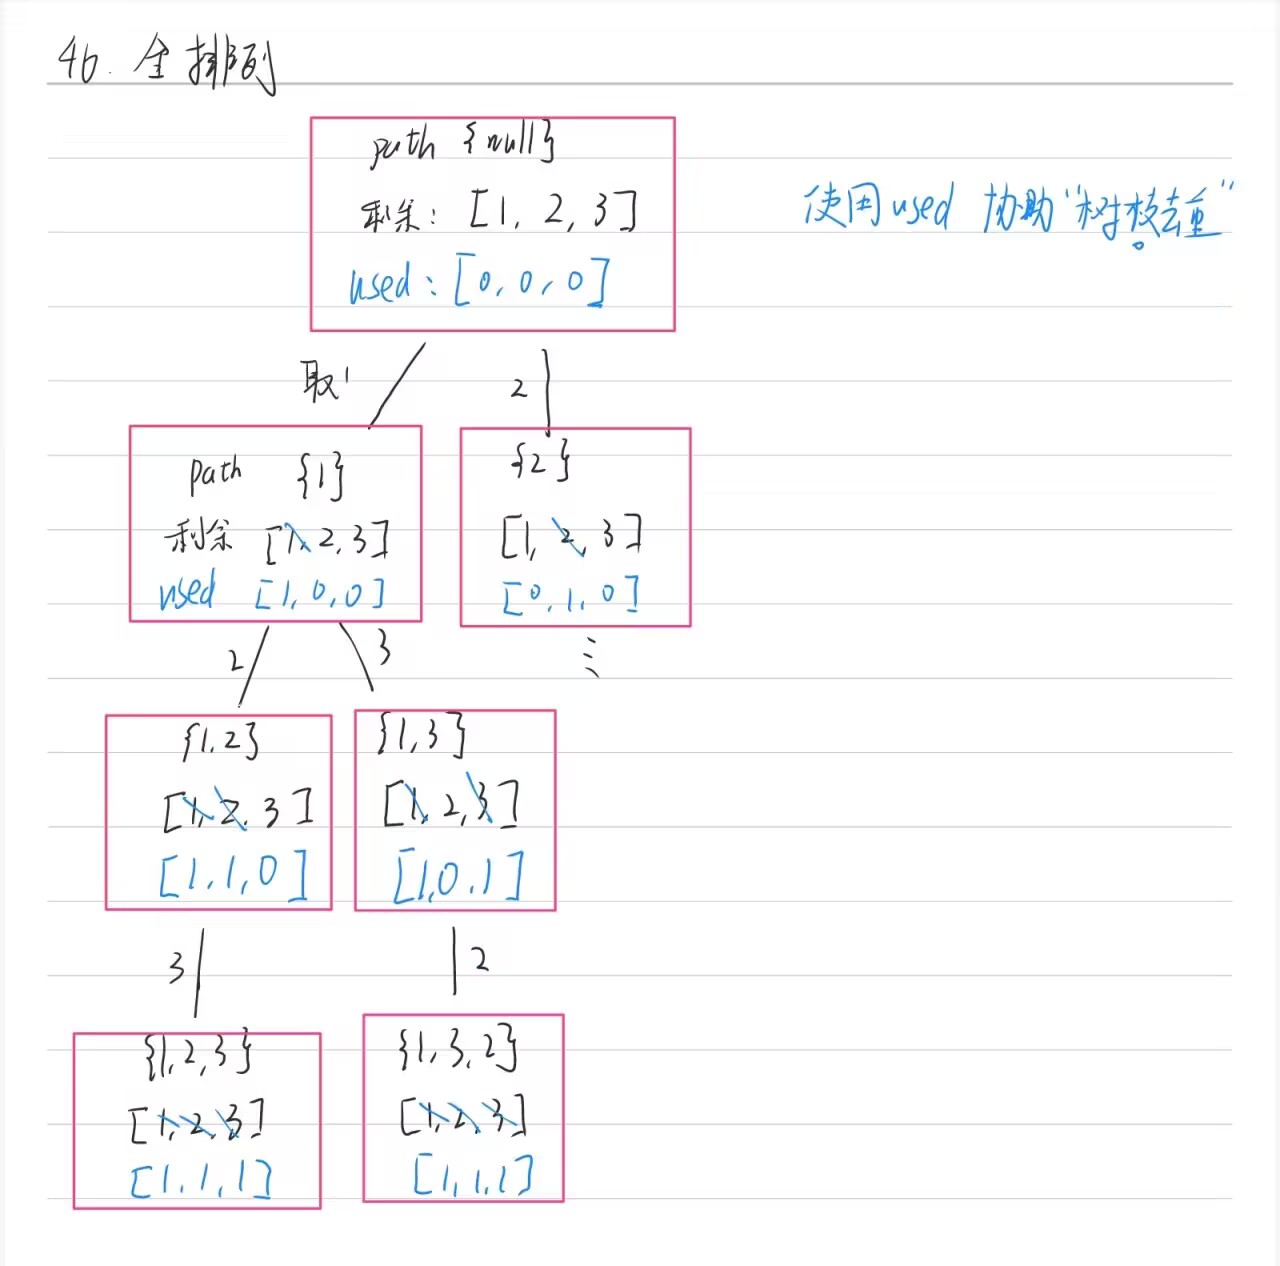 46. 全排列
path {null}
剩余: [1, 2, 3]
used: [0, 0, 0]
使用used 协助“树枝去重”
取1
2
path {1}
剩余 [1, 2, 3]
used [1, 0, 0]
{2}
[1, 2, 3]
[0, 1, 0]
⋮
2
3
{1, 2}
[1, 2, 3]
[1, 1, 0]
{1, 3}
[1, 2, 3]
[1, 0, 1]
3
2
{1, 2, 3}
[1, 2, 3]
[1, 1, 1]
{1, 3, 2}
[1, 2, 3]
[1, 1, 1]